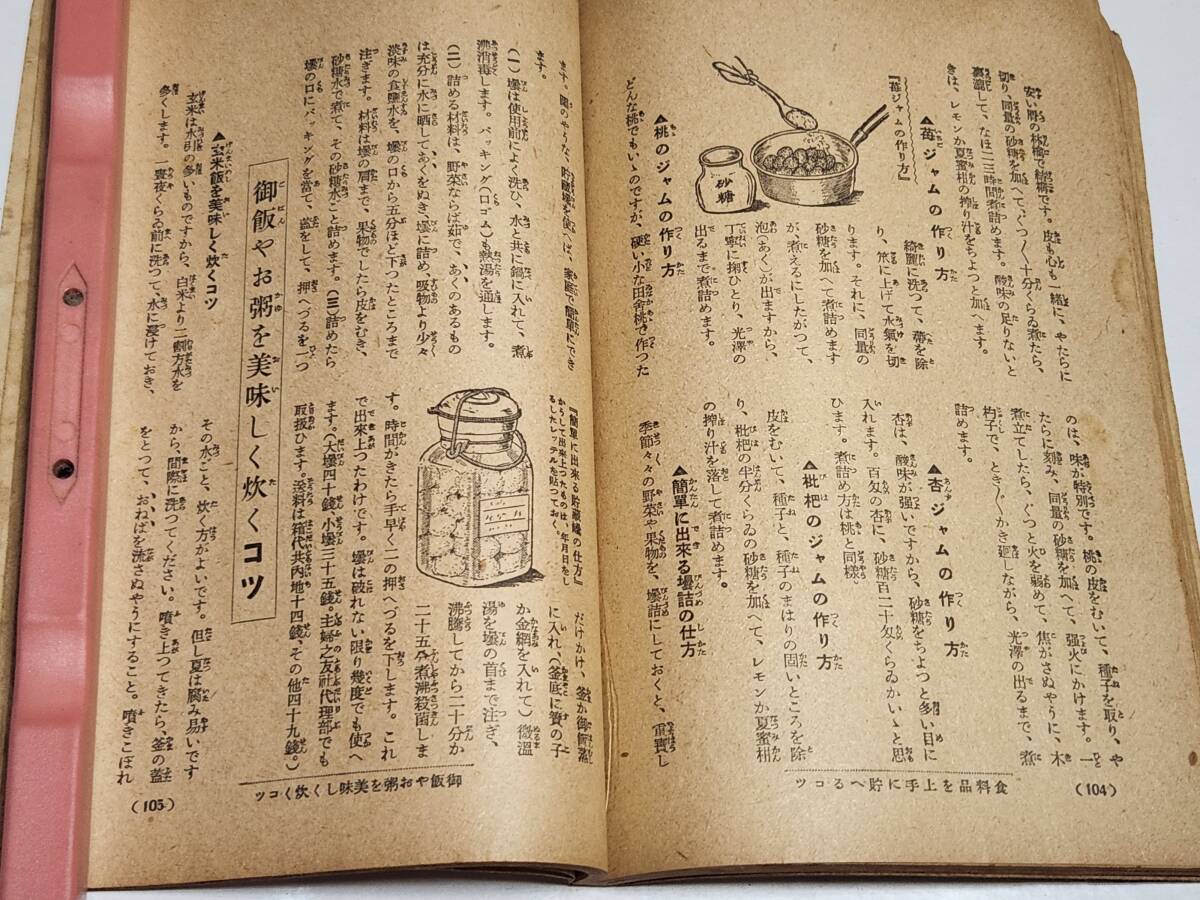 安い屑の林檎で結構です。皮も心も一緒に、やたらに
切り、同量の砂糖を加へて、ぐつ〳〵十分くらゐ煮たら、
裏漉して、なほ二三時間煮詰めます。酸味の足りないと
きは、レモンか夏蜜柑の搾り汁をちよつと加へます。
▲苺ジャムの作り方
『苺ジャムの作り方』
砂糖
綺麗に洗つて、蔕を除
り、笊に上げて水氣を切
ります。それに、同量の
砂糖を加へて煮詰めます
が、煮えるにしたがつて、
泡(あく)が出ますから、
丁寧に掬ひとり、光澤の
出るまで煮詰めます。
▲桃のジャムの作り方
どんな桃でもいゝのですが、硬い小な田舎桃で作つた
のは、味が特別です。桃の皮をむいて、種子を取り、や
たらに刻み、同量の砂糖を加へて、强火にかけます。一
煮立てしたら、ぐつと火を弱めて、焦がさぬやうに、木
杓子で、とき〴〵かき廻しながら、光澤の出るまで、煮
詰めます。
▲杏ジャムの作り方
杏は、酸味が强いですから、砂糖をちよつと多い目に
入れます。百匁の杏に、砂糖百二十匁くらゐかいゝと思
ひます。煮詰め方は桃と同樣。
▲枇杷のジャムの作り方
皮をむいて、種子と、種子のまはりの固いところを除
り、枇杷の半分くらゐの砂糖を加へて、レモンか夏蜜柑
の搾り汁を落して煮詰めます。
▲簡單に出來る壜詰の仕方
季節々々の野菜や果物を、壜詰にしておくと、重寶し
食料品を上手に貯へるコツ
(104)
ます。圖のやうな、貯藏壜を使へば、家庭で簡單にでき
ます。
(一)壜は使用前によく洗ひ、水と共に鍋に入れて、煮
沸消毒します。パッキング(口ゴム)も熱湯を通します。
(二)詰める材料は、野菜ならば茹で、あくのあるもの
は充分に水に晒してあくをぬき、壜に詰め、吸物より少々
淡味の食鹽水を、壜の口から五分ほど下つたところまで
注ぎます。材料は壜の肩まで、果物でしたら皮をむき、
砂糖水で煮て、その砂糖水ごと詰めます。(三)詰めたら
壜の口にパッキングを當て、蓋をして、押へづるを一つ
『簡單に出來る貯藏壜の仕方』
かうして出來上つたものは、年月日をし
るしたレッテルを貼つておく。
だけかけ、釜か御飯蒸
に入れ、(釜底に簀の子
か金網を入れて)微溫
湯を壜の首まで注ぎ、
沸騰してから二十分か
二十五分煮沸殺菌しま
す。時間がきたら手早く二の押へづるを下します。これ
で出來上つたわけです。壜は破れない限り幾度でも使へ
ます。(大壜四十錢、小壜三十五錢。主婦之友社代理部でも
取扱ひます。送料は箱代共內地十四錢、その他四十九錢。)
御飯やお粥を美味しく炊くコツ
▲玄米飯を美味しく炊くコツ
玄米は水引の多いものですから、白米より二割方水を
多くします。一晝夜くらゐ前に洗つて、水に浸けておき、
その水ごと、炊く方がよいです。但し夏は腐み易いです
から、間際に洗つてください。噴き上つてきたら、釜の蓋
をとつて、おねばを流さぬやうにすること。噴きこぼれ
御飯やお粥を美味しく炊くコツ
(105)